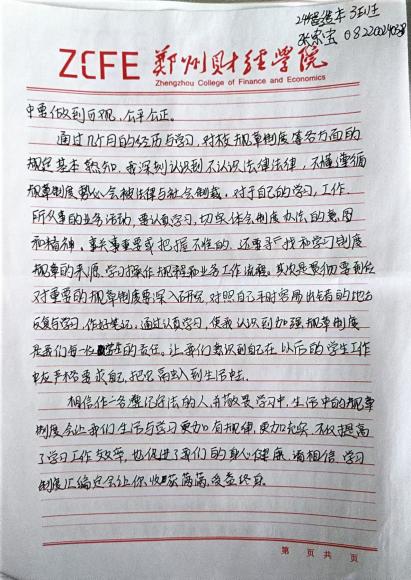 24智造本3班
08220024038
ZCFE 郑州财经学院
Zhengzhou College of Finance and Economics
中要做到百观、公平公正。
通过几个月的经历与学习,对校规章制度等各方面的
规定基本熟知,我深刻认识到不认识法律法律,不懂遵循
规章制度势必会被法律与社会制裁,对于自己的学习、工作
所从事的业务活动,要认真学习,切实体会制度办法的意图
和精神,事关事重要或把握不准的,还要寻找和学习制度
规章的来源,学习操作规程和业务工作流程。其次是最切要到位
对重要的规章制度要深入研究,对照自己平时容易出错的地方
反复学习,作好笔记,通过认真学习,使我认识到加强规章制度
是我们每一位学生的责任。让我们意识到自己在以后的学生工作
中应严格要求自己,把它融入到生活中去。
相信作一名遵纪守法的人,并敬畏学习中,生活中的规章
制度会让我们生活与学习更加有规律,更加充实,不仅提高
了学习工作效率,也促进了我们的身心健康。请相信,学习
制度汇编定会让你收获满满,受益终身。
第 页 共 页